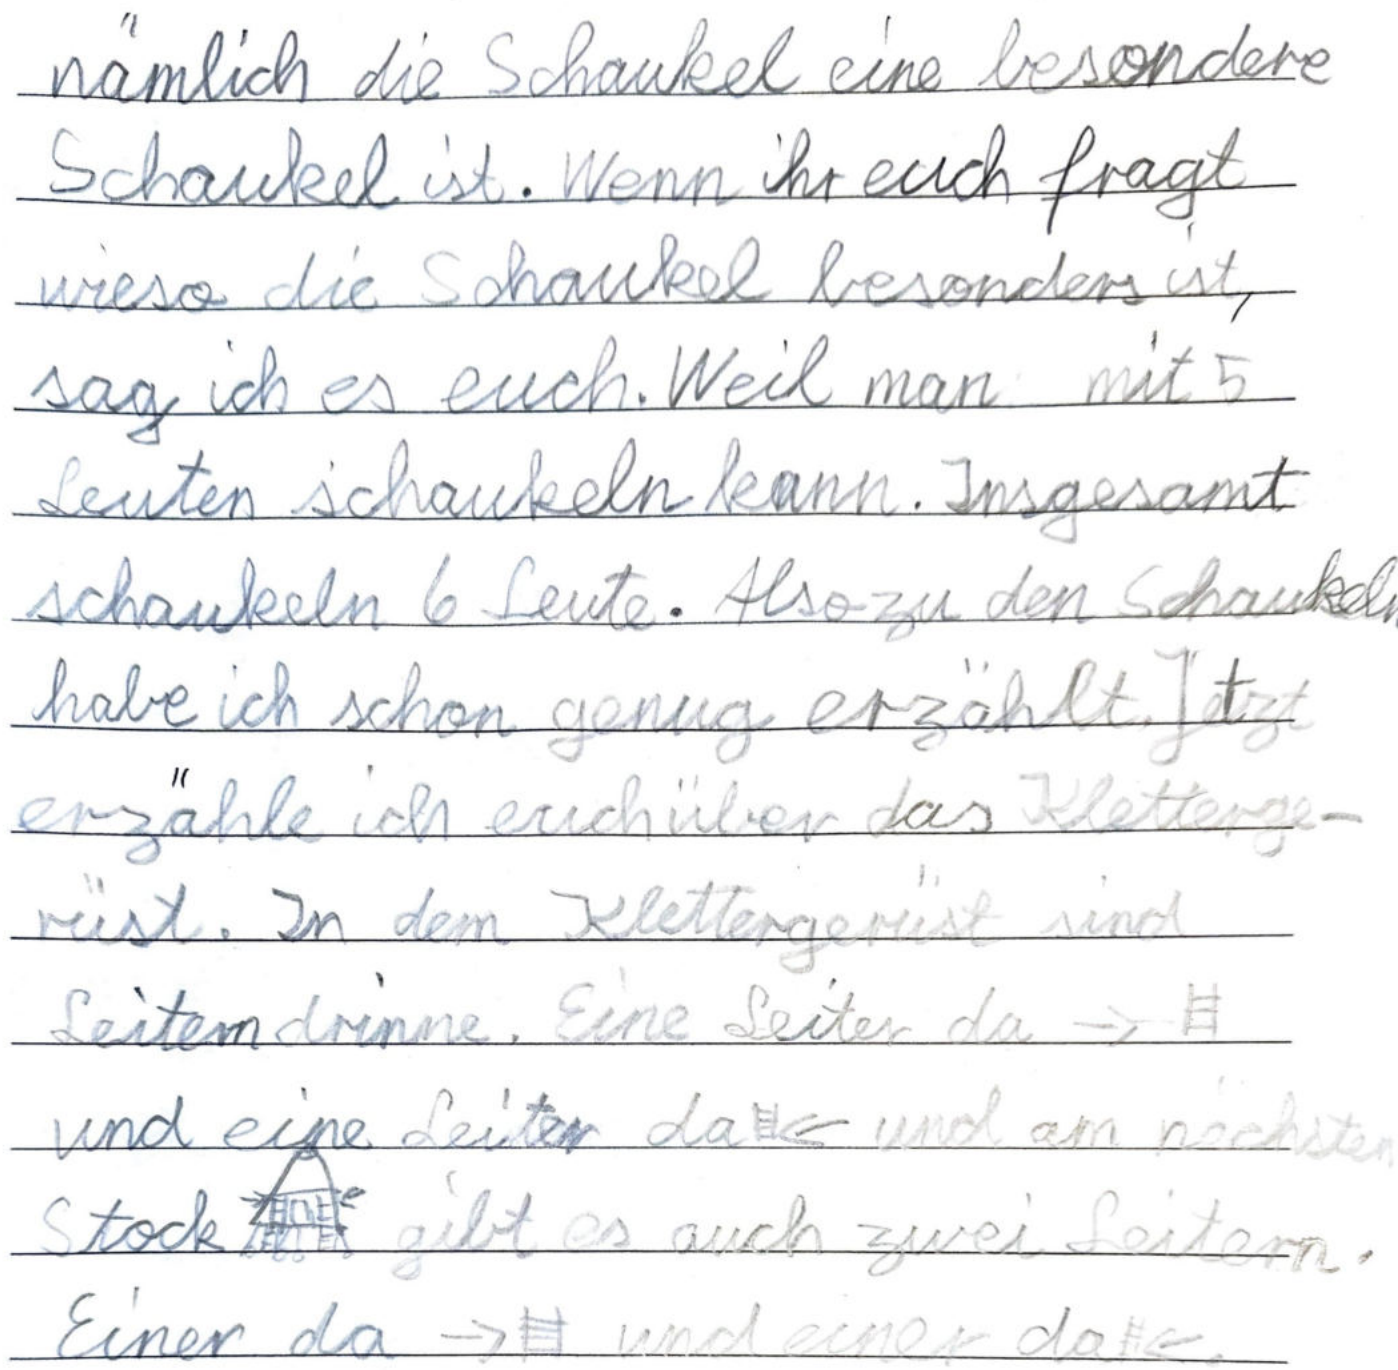 nämlich die Schaukel eine besondere
Schaukel ist. Wenn ihr euch fragt
wieso die Schaukel besonders ist,
sag ich es euch. Weil man mit 5
Leuten schaukeln kann. Insgesamt
schaukeln 6 Leute. Also zu den Schaukeln
habe ich schon genug erzählt. Jetzt
erzähle ich euch über das Kletterge-
rüst. In dem Klettergerüst sind
Leitern drinne. Eine Leiter da →
und eine Leiter da ← und am nächsten
Stock gibt es auch zwei Leitern.
Einer da → und einer da ←.